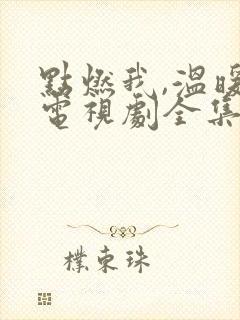 點燃我,溫暖
電視劇全集
樸東珠